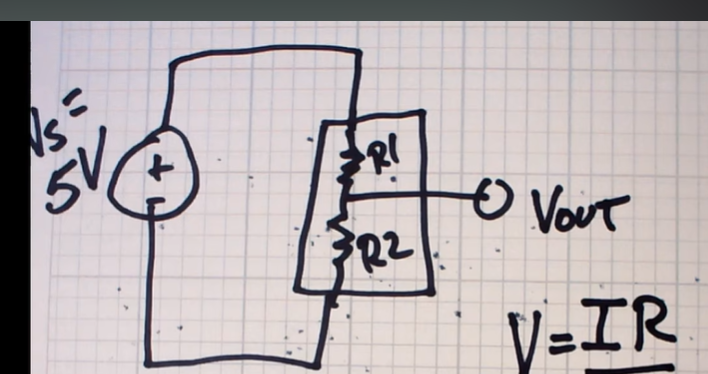 Vs=
5V
+
-
R1
R2
VOUT
V=IR